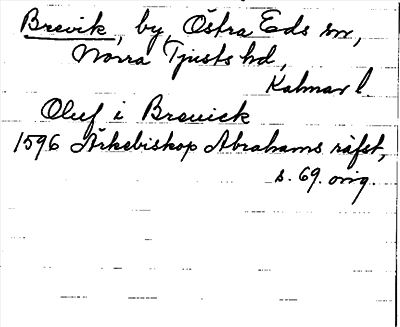 Brevik, by, Östra Eds sn,
Norra Tjusts hd,
Kalmar l.
Oluf i Breuick
1596 Ärkebiskop Abrahams räfst,
s. 69. orig.